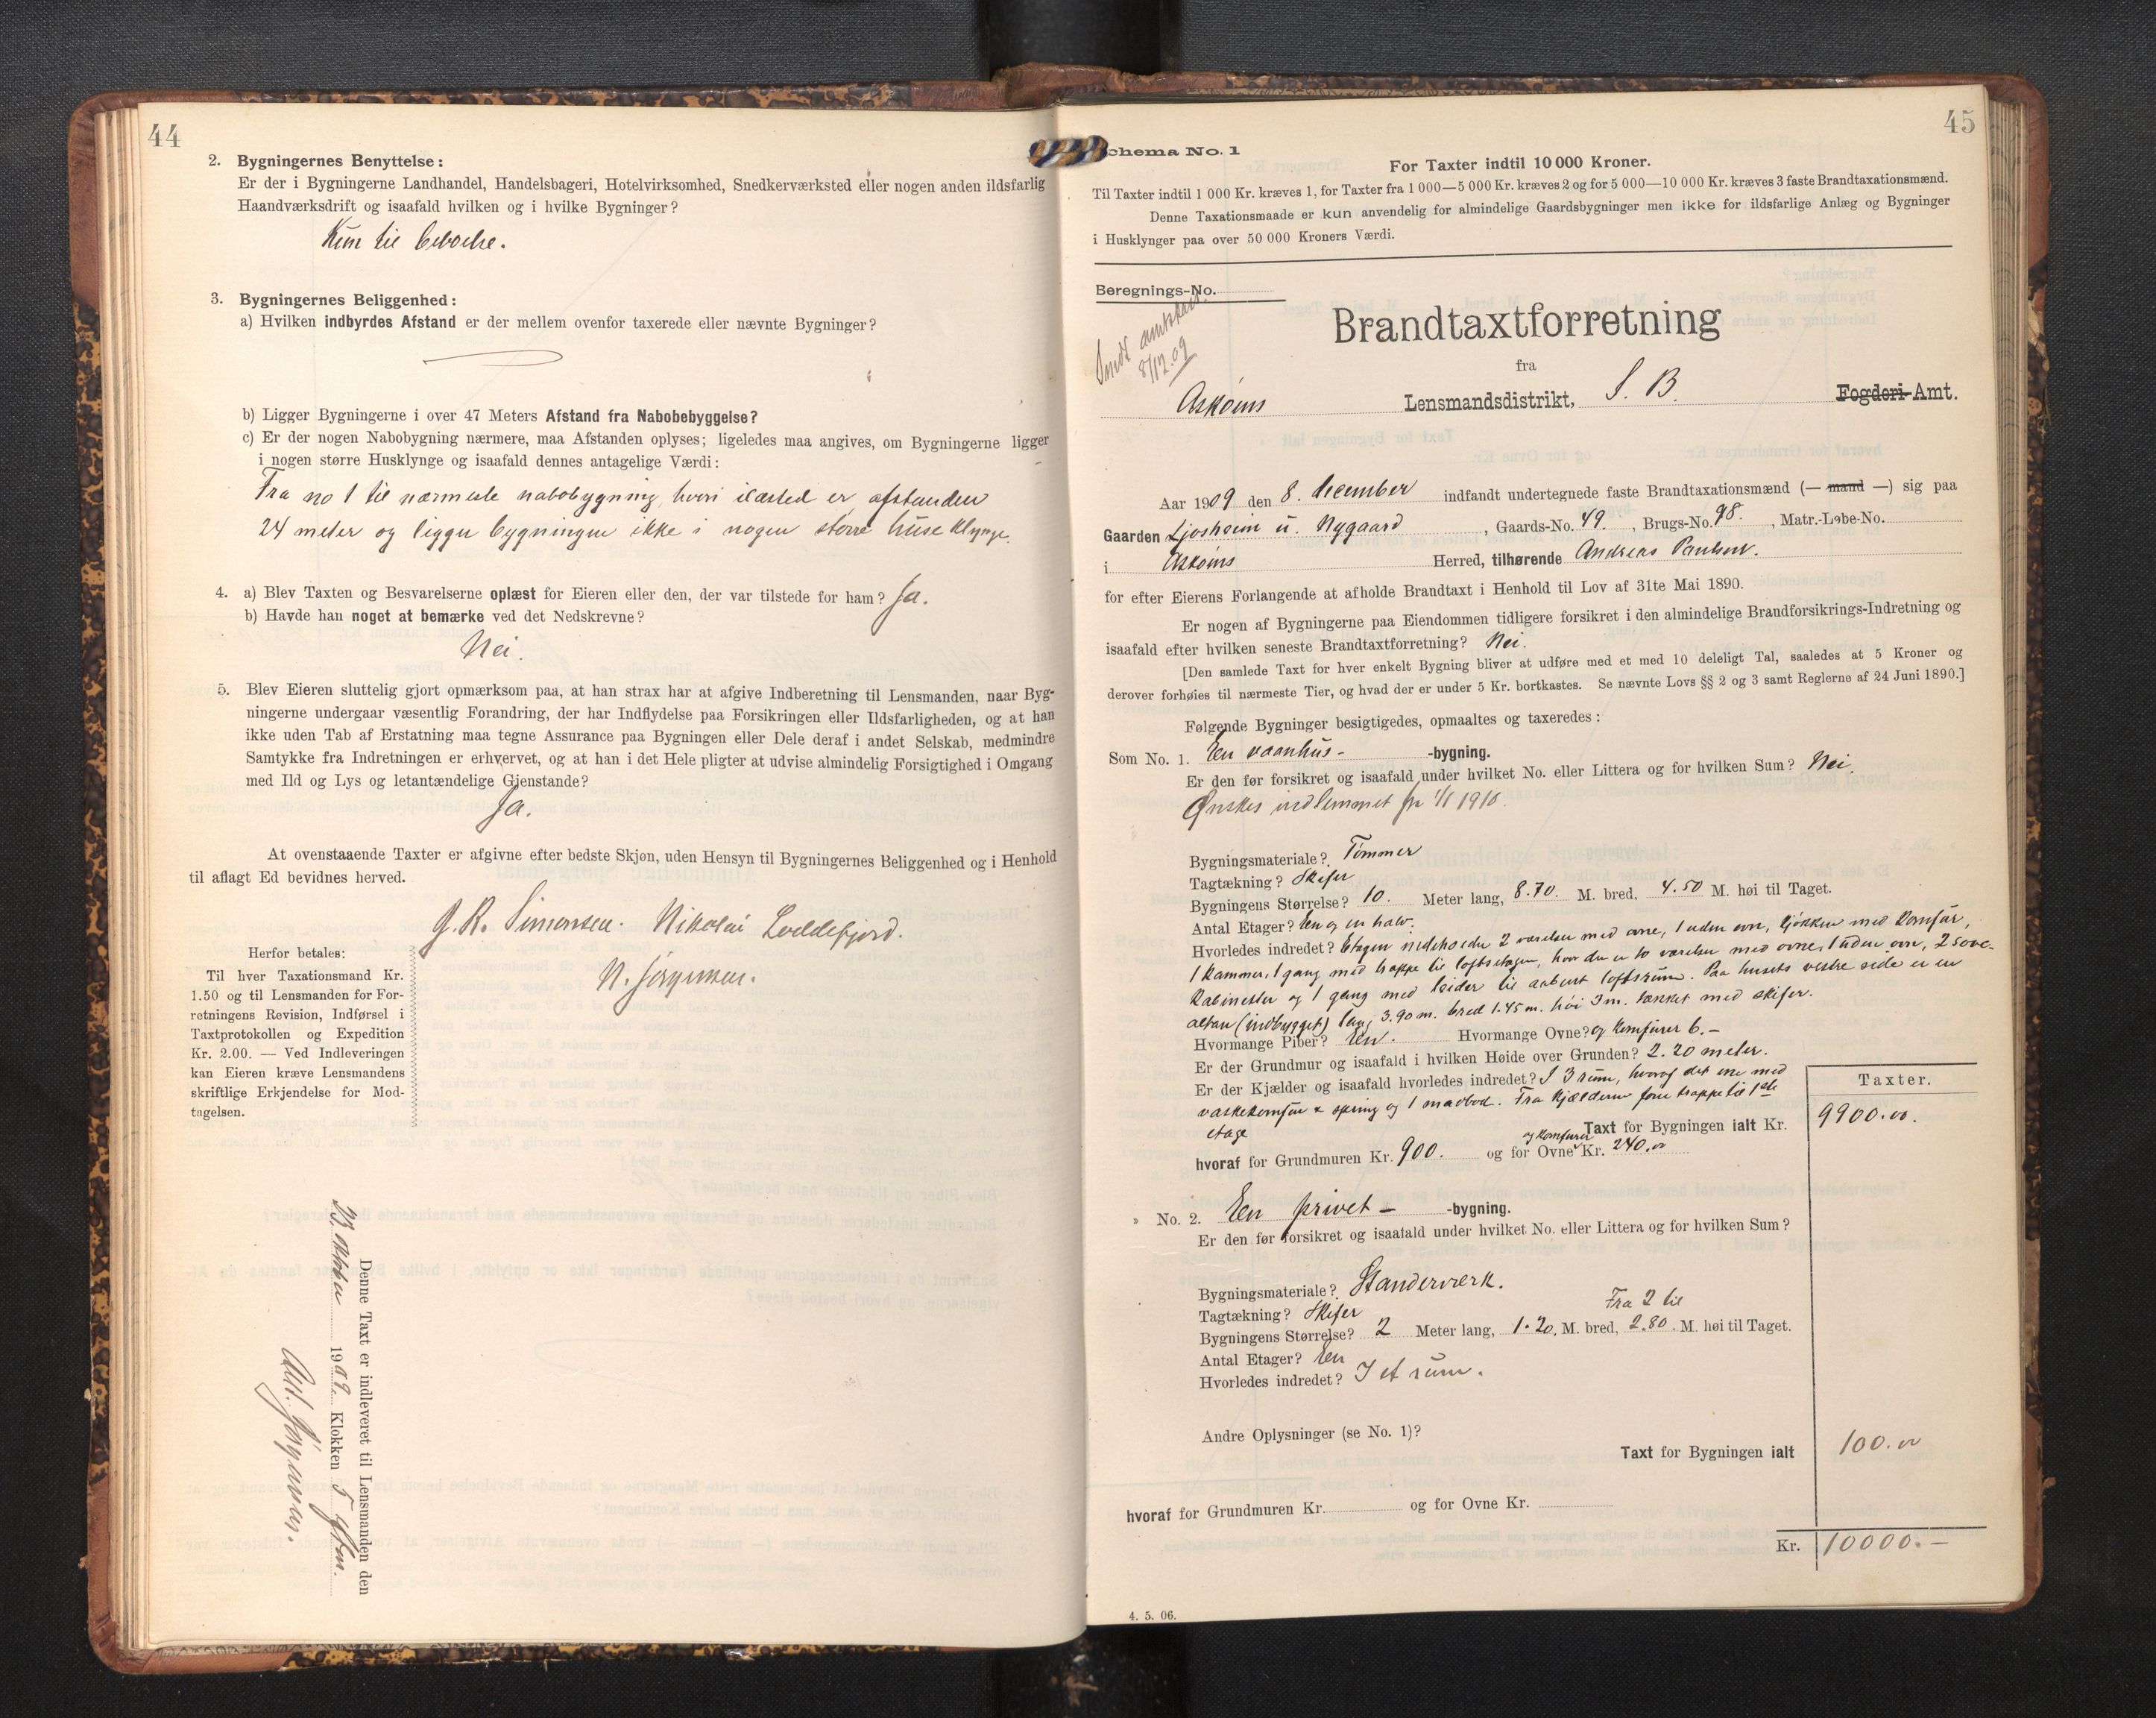 44
2. Bygningernes Benyttelse:
Er der i Bygningerne Landhandel, Handelsbageri, Hotelvirksomhed, Snedkerværksted eller nogen anden ildsfarlig
Haandværksdrift og isaafald hvilken og i hvilke Bygninger?
Kun til beboelse.
3. Bygningernes Beliggenhed:
a) Hvilken indbyrdes Afstand er der mellem ovenfor taxerede eller nævnte Bygninger?
b) Ligger Bygningerne i over 47 Meters Afstand fra Nabobebyggelse?
c) Er der nogen Nabobygning nærmere, maa Afstanden oplyses; ligeledes maa angives, om Bygningerne ligger
i nogen større Husklynge og isaafald dennes antagelige Værdi:
Fra no 1 til nærmeste nabobygning, hvori ildsted er afstanden
24 meter og ligger bygningen ikke i nogen større huseklynge.
4. a) Blev Taxten og Besvarelserne oplæst for Eieren eller den, der var tilstede for ham? Ja.
b) Havde han noget at bemærke ved det Nedskrevne?
Nei.
5. Blev Eieren sluttelig gjort opmærksom paa, at han strax har at afgive Indberetning til Lensmanden, naar Byg-
ningerne undergaar væsentlig Forandring, der har Indflydelse paa Forsikringen eller Ildsfarligheden, og at han
ikke uden Tab af Erstatning maa tegne Assurance paa Bygningen eller Dele deraf i andet Selskab, medmindre
Samtykke fra Indretningen er erhvervet, og at han i det Hele pligter at udvise almindelig Forsigtighed i Omgang
med Ild og Lys og letantændelige Gjenstande?
Ja.
At ovenstaaende Taxter er afgivne efter bedste Skjøn, uden Hensyn til Bygningernes Beliggenhed og i Henhold
til aflagt Ed bevidnes herved.
J. R. Simonsen. Nikolai Loddefjord.
N. Jørgensen.
Herfor betales:
Til hver Taxationsmand Kr.
1.50 og til Lensmanden for For-
retningens Revision, Indførsel i
Taxtprotokollen og Expedition
Kr. 2.00. — Ved Indleveringen
kan Eieren kræve Lensmandens
skriftlige Erkjendelse for Mod-
tagelsen.
Denne Taxt er indleveret til Lensmanden den
1909. Klokken 5 eftm.
Jørgensen.
45
Schema No. 1
For Taxter indtil 10 000 Kroner.
Til Taxter indtil 1 000 Kr. kræves 1, for Taxter fra 1 000—5 000 Kr. kræves 2 og for 5 000—10 000 Kr. kræves 3 faste Brandtaxationsmænd.
Denne Taxationsmaade er kun anvendelig for almindelige Gaardsbygninger men ikke for ildsfarlige Anlæg og Bygninger
i Husklynger paa over 50 000 Kroners Værdi.
Beregnings-No.
Sendt amtskont.
8/12.09
Brandtaxtforretning
fra
Askøens Lensmandsdistrikt, S. B. Fogderi-Amt.
Aar 1909 den 8. december indfandt undertegnede faste Brandtaxationsmænd (— mand —) sig paa
Gaarden Ljosheim u. Nygaard, Gaards-No. 49., Brugs-No. 98., Matr.-Løbe-No.
i Askøens Herred, tilhørende Andreas Paulsen.
for efter Eierens Forlangende at afholde Brandtaxt i Henhold til Lov af 31te Mai 1890.
Er nogen af Bygningerne paa Eiendommen tidligere forsikret i den almindelige Brandforsikrings-Indretning og
isaafald efter hvilken seneste Brandtaxtforretning? Nei.
[Den samlede Taxt for hver enkelt Bygning bliver at udføre med et med 10 deleligt Tal, saaledes at 5 Kroner og
derover forhøies til nærmeste Tier, og hvad der er under 5 Kr. bortkastes. Se nævnte Lovs §§ 2 og 3 samt Reglerne af 24 Juni 1890.]
Følgende Bygninger besigtigedes, opmaaltes og taxeredes:
Som No. 1. En vaanhus- -bygning.
Er den før forsikret og isaafald under hvilket No. eller Littera og for hvilken Sum? Nei.
Ønskes indlemmet fra 1/1 1910.
Bygningsmateriale? Tømmer
Tagtækning? Skifer
Bygningens Størrelse? 10. Meter lang, 8.70. M. bred, 4.50 M. høi til Taget.
Antal Etager? En og en halv.
Hvorledes indredet? Etagen indeholder 2 værelser med ovne, 1 uden ovn, kjøkken med komfur,
1 kammer, 1 gang med trappe til loftsetagen, hvor der er to værelser med ovne, 1 uden ovn, 2 sove-
kabinetter og 1 gang med leider til aabent loftsrum. Paa husets vestre side er en
altan (indbygget) lang 3.90 m. bred 1.45 m. høi 3 m. tækket med skifer.
Hvormange Piber? En. Hvormange Ovne? og komfurer 6.-
Er der Grundmur og isaafald i hvilken Høide over Grunden? 2.20 meter.
Er der Kjælder og isaafald hvorledes indredet? I 3 rum, hvoraf det ene med
vaskekomfur & spring og 1 madbod. Fra kjælderen fører trappe til 1ste
etage
Taxter.
Taxt for Bygningen ialt Kr. 9900.00.
hvoraf for Grundmuren Kr. 900. og for Ovne og komfurer Kr. 240.00
» No. 2. En privet - -bygning.
Er den før forsikret og isaafald under hvilket No. eller Littera og for hvilken Sum?
Bygningsmateriale? Standerværk.
Tagtækning? Skifer
Fra 2 til
Bygningens Størrelse? 2 Meter lang, 1.20. M. bred, 2.80. M. høi til Taget.
Antal Etager? En
Hvorledes indredet? I et rum.
Andre Oplysninger (se No. 1)?
Taxt for Bygningen ialt 100.00
hvoraf for Grundmuren Kr. og for Ovne Kr.
Kr. 10000.-
4. 5. 06.